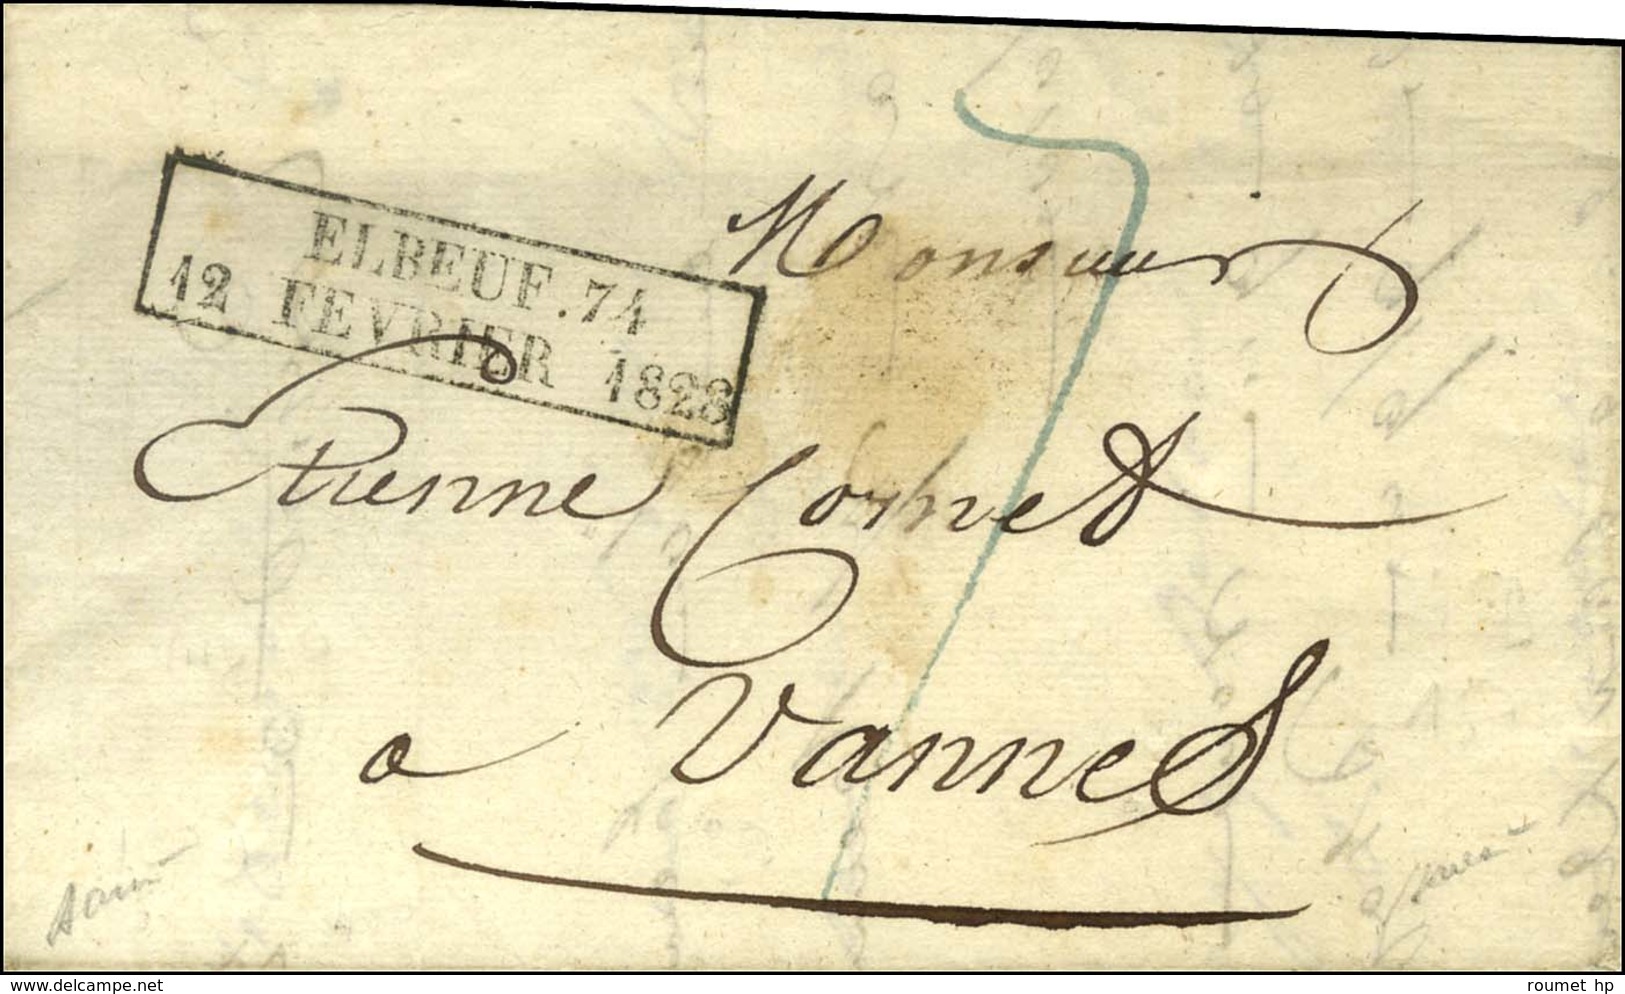 ELBEUF.74
12 FEVRIER 1828
Monsieur
Etienne Cornet
a Vannes
delcampe.net
roumet hp